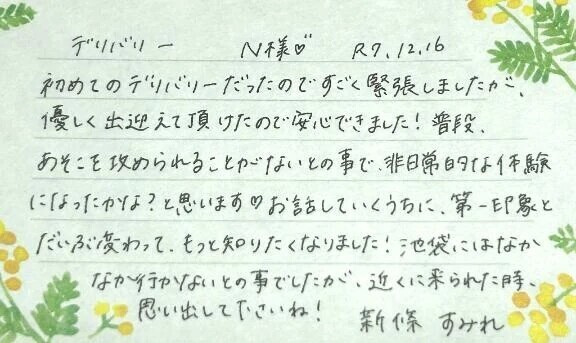 デリバリー N様♡ R7.12.16
初めてのデリバリーだったのですごく緊張しましたが、
優しく出迎えて頂けたので安心できました!普段、
あそこを攻められることがないとの事で、非日常的な体験
になったかな?と思います♡お話していくうちに、第一印象と
だいぶ変わって、もっと知りたくなりました!池袋にはなか
なか行かないとの事でしたが、近くに来られた時、
思い出して下さいね!
新條 すみれ